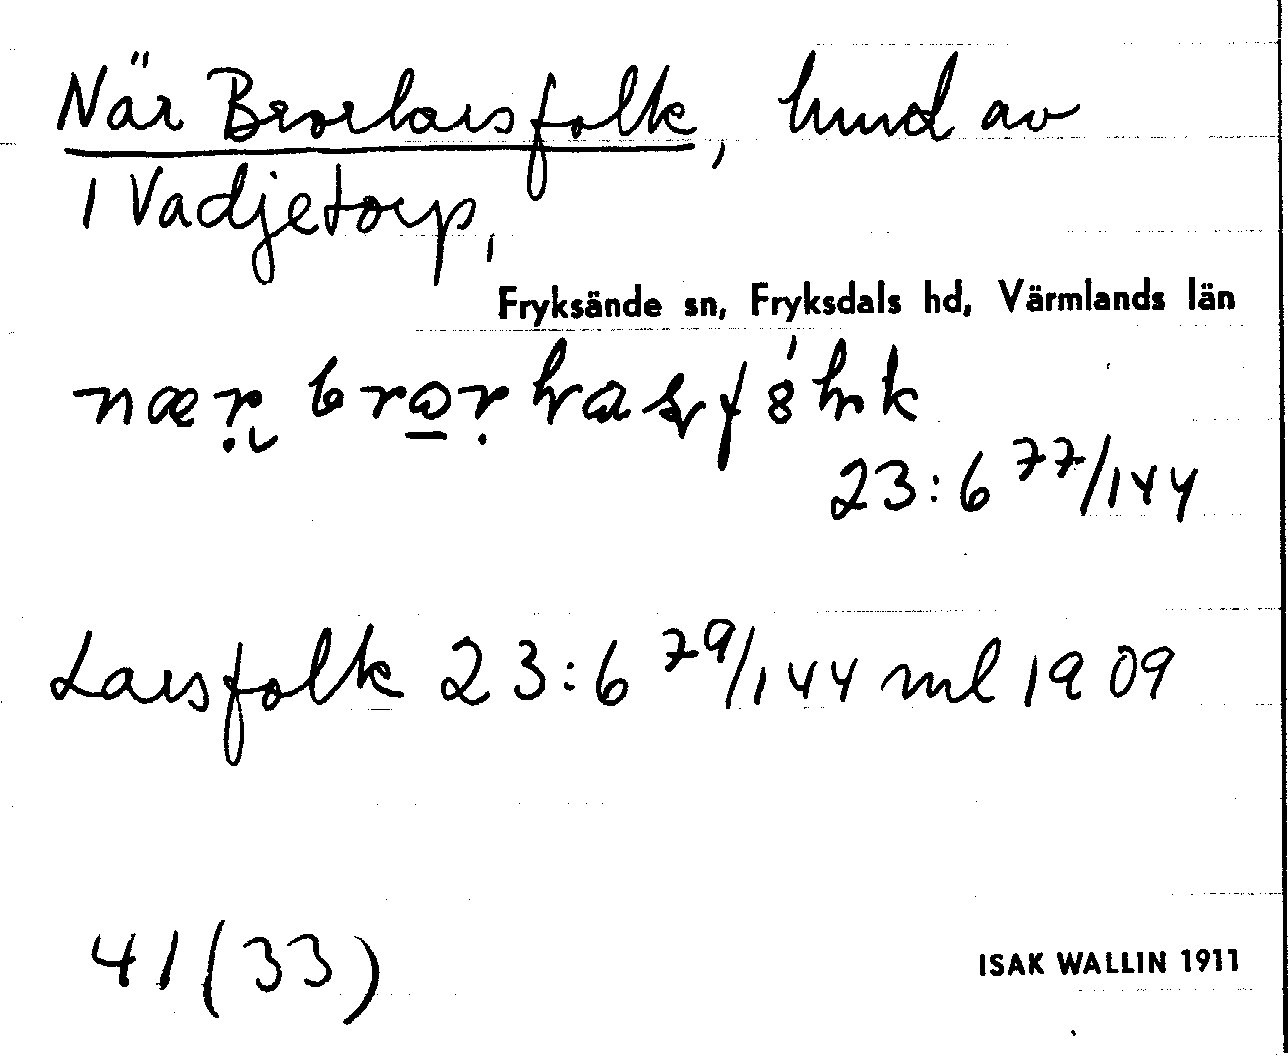 När Brorlarsfolk, hund av
1 Vadjetorp,
Fryksände sn, Fryksdals hd, Värmlands län
23:6 77/144
Larsfolk 23:6 79/144 ml 1909
41(33)
ISAK WALLIN 1911